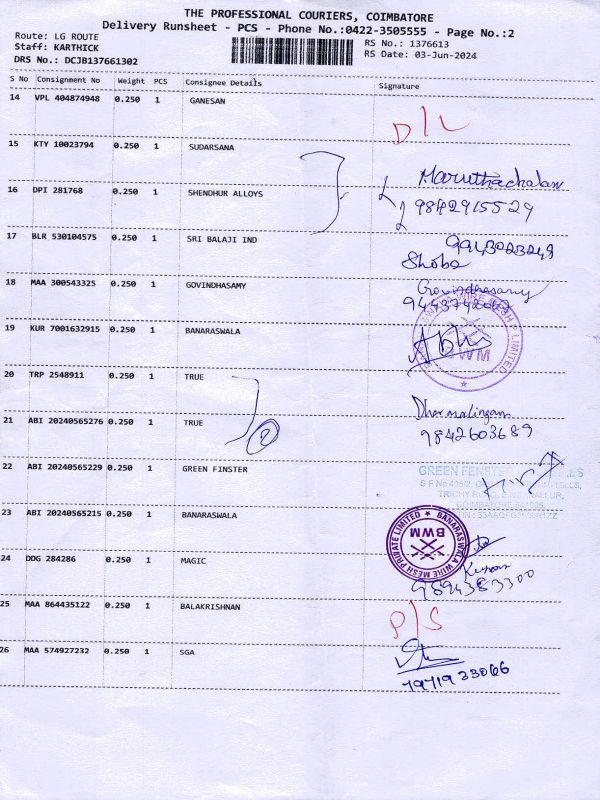 THE PROFESSIONAL COURIERS, COIMBATORE
Delivery Runsheet - PCS - Phone No.:0422-3505555 - Page No.:2
Route: LG ROUTE
Staff: KARTHICK
DRS No.: DCJB137661302
RS No.: 1376613
RS Date: 03-Jun-2024
S No Consignment No Weight PCS Consignee Details Signature
14 VPL 404874948 0.250 1 GANESAN D/L
15 KTY 10023794 0.250 1 SUDARSANA
Maruthachalam
16 DPI 281768 0.250 1 SHENDHUR ALLOYS
9842915529
17 BLR 530104575 0.250 1 SRI BALAJI IND
9943023249
Shoba
18 MAA 300543325 0.250 1 GOVINDHASAMY
Govindhasamy
19 KUR 7001632915 0.250 1 BANARASWALA
Abhi
BWM
LIMITED
20 TRP 2548911 0.250 1 TRUE
Dharmalingam
21 ABI 20240565276 0.250 1 TRUE
9842603689
2
22 ABI 20240565229 0.250 1 GREEN FINSTER
GREEN FENSTE
S F No
TRICHY
23 ABI 20240565215 0.250 1 BANARASWALA
BANARASWALA WIRE MESH PRIVATE LIMITED
BWM
24 DDG 284286 0.250 1 MAGIC
9894383300
25 MAA 864435122 0.250 1 BALAKRISHNAN P/S
26 MAA 574927232 0.250 1 SGA